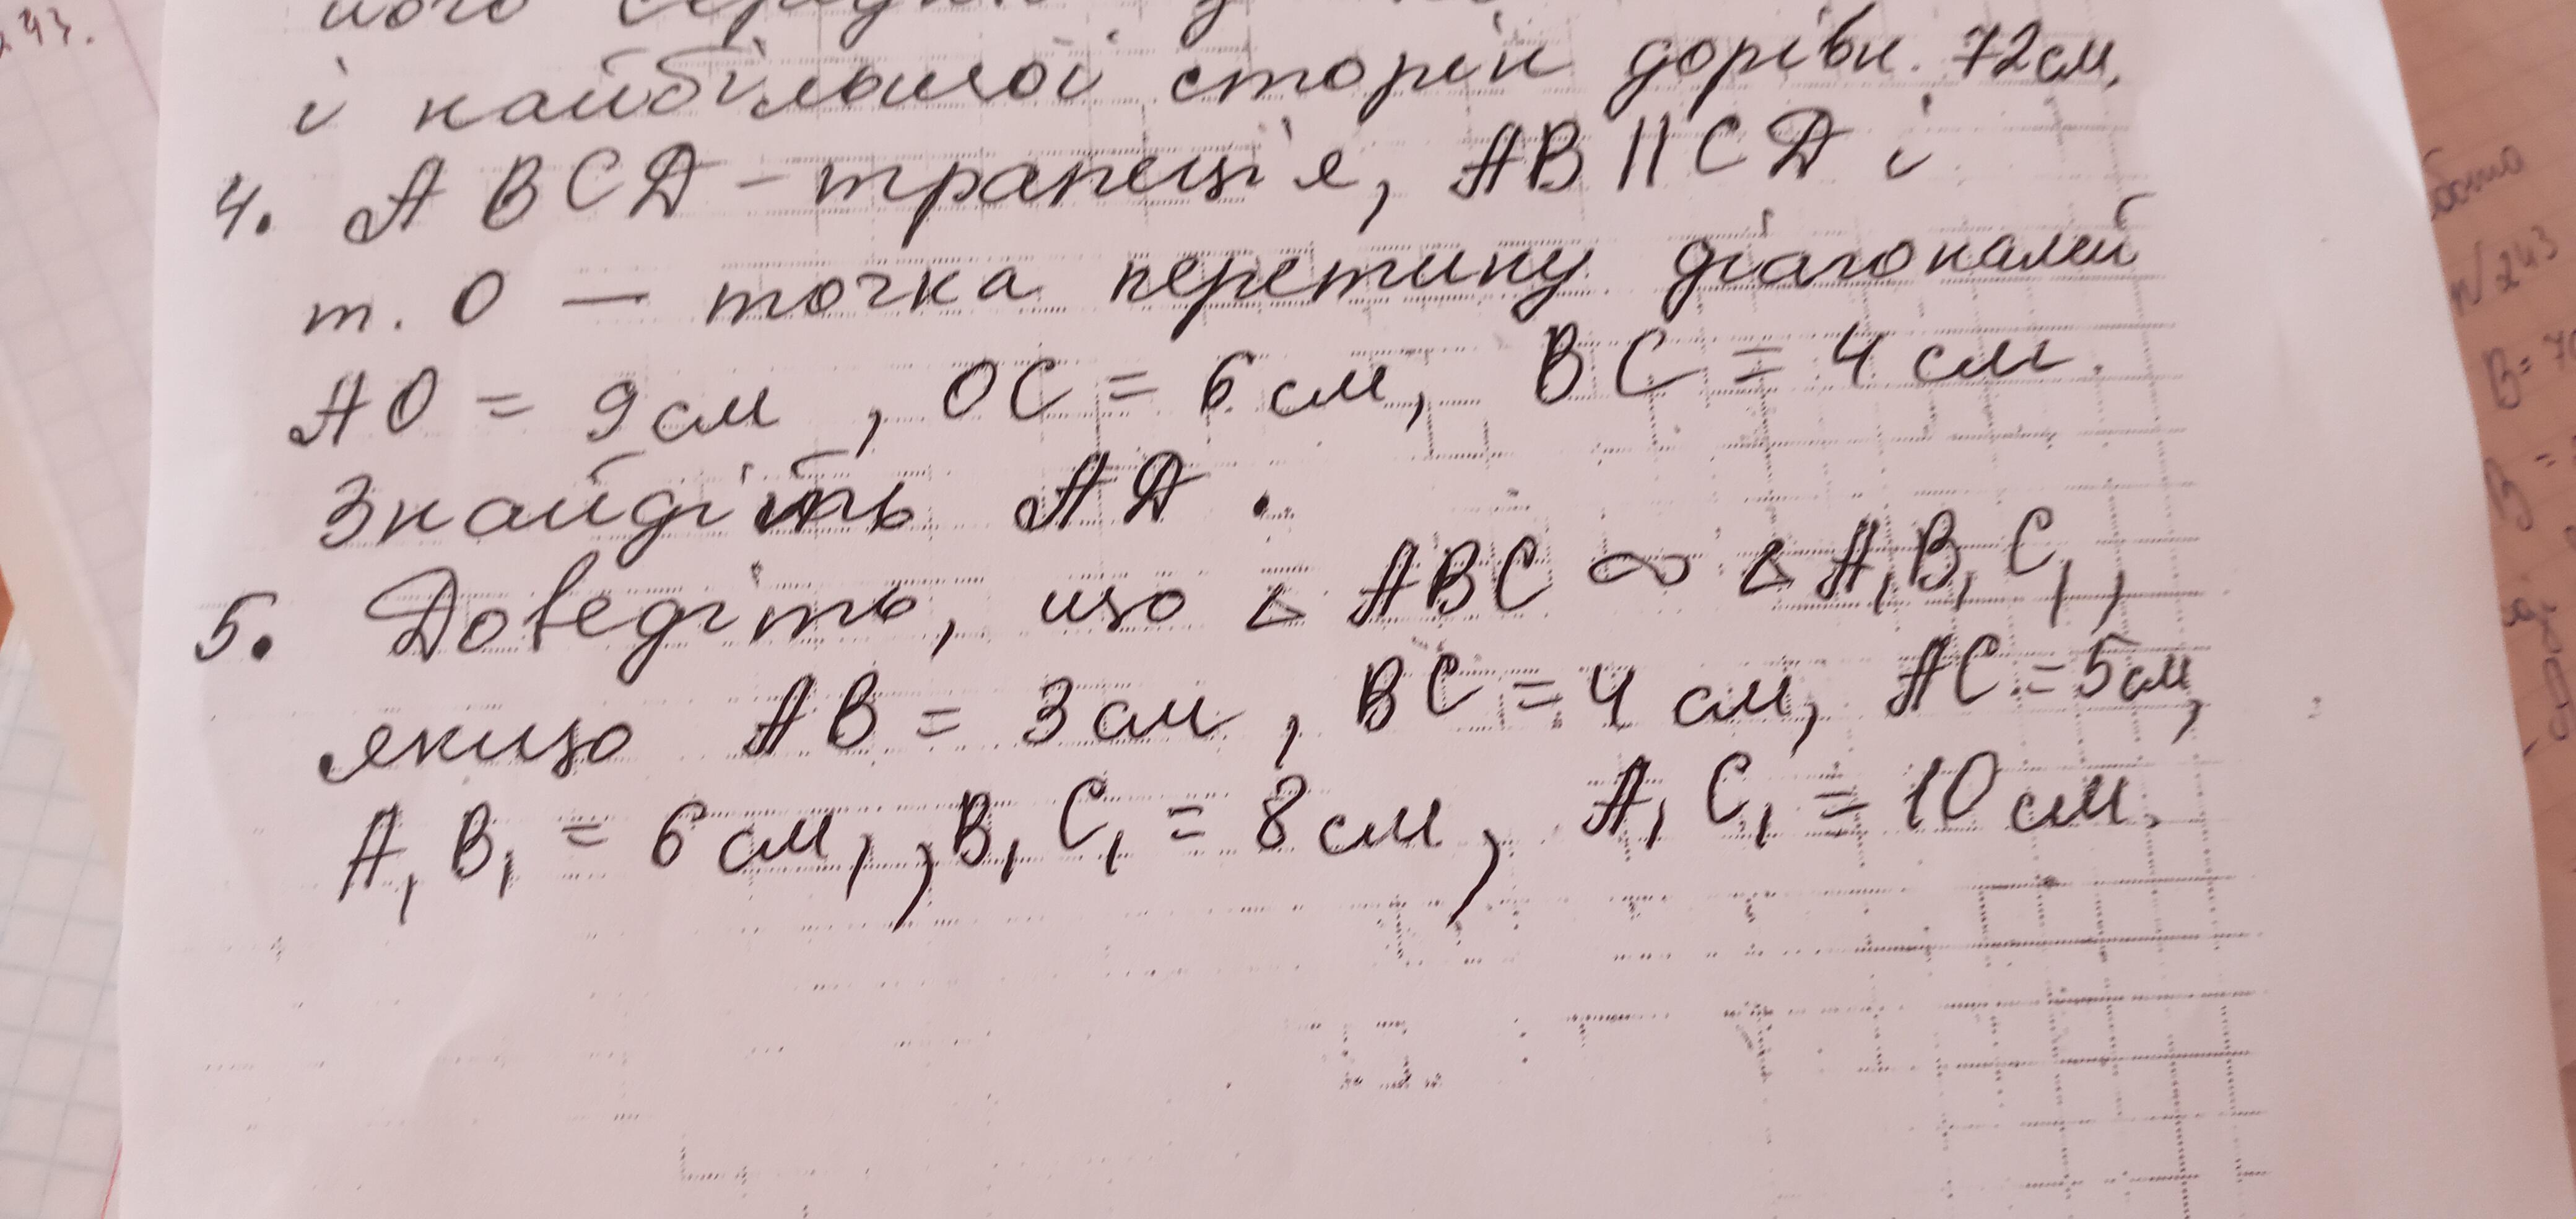 243.
і найбільшої сторін дорівн. 72см,
4. ABCD - трапеція, AB || CD і
т. O — точка перетину діагоналей
AO = 9 см, OC = 6 см, BC = 4 см.
Знайдіть AD.
5. Доведіть, що △ ABC ∞ △ A₁B₁C₁,
якщо AB = 3 см, BC = 4 см, AC = 5 см,
A₁B₁ = 6 см, , B₁C₁ = 8 см, A₁C₁ = 10 см.
№ 243
B = 70
B =